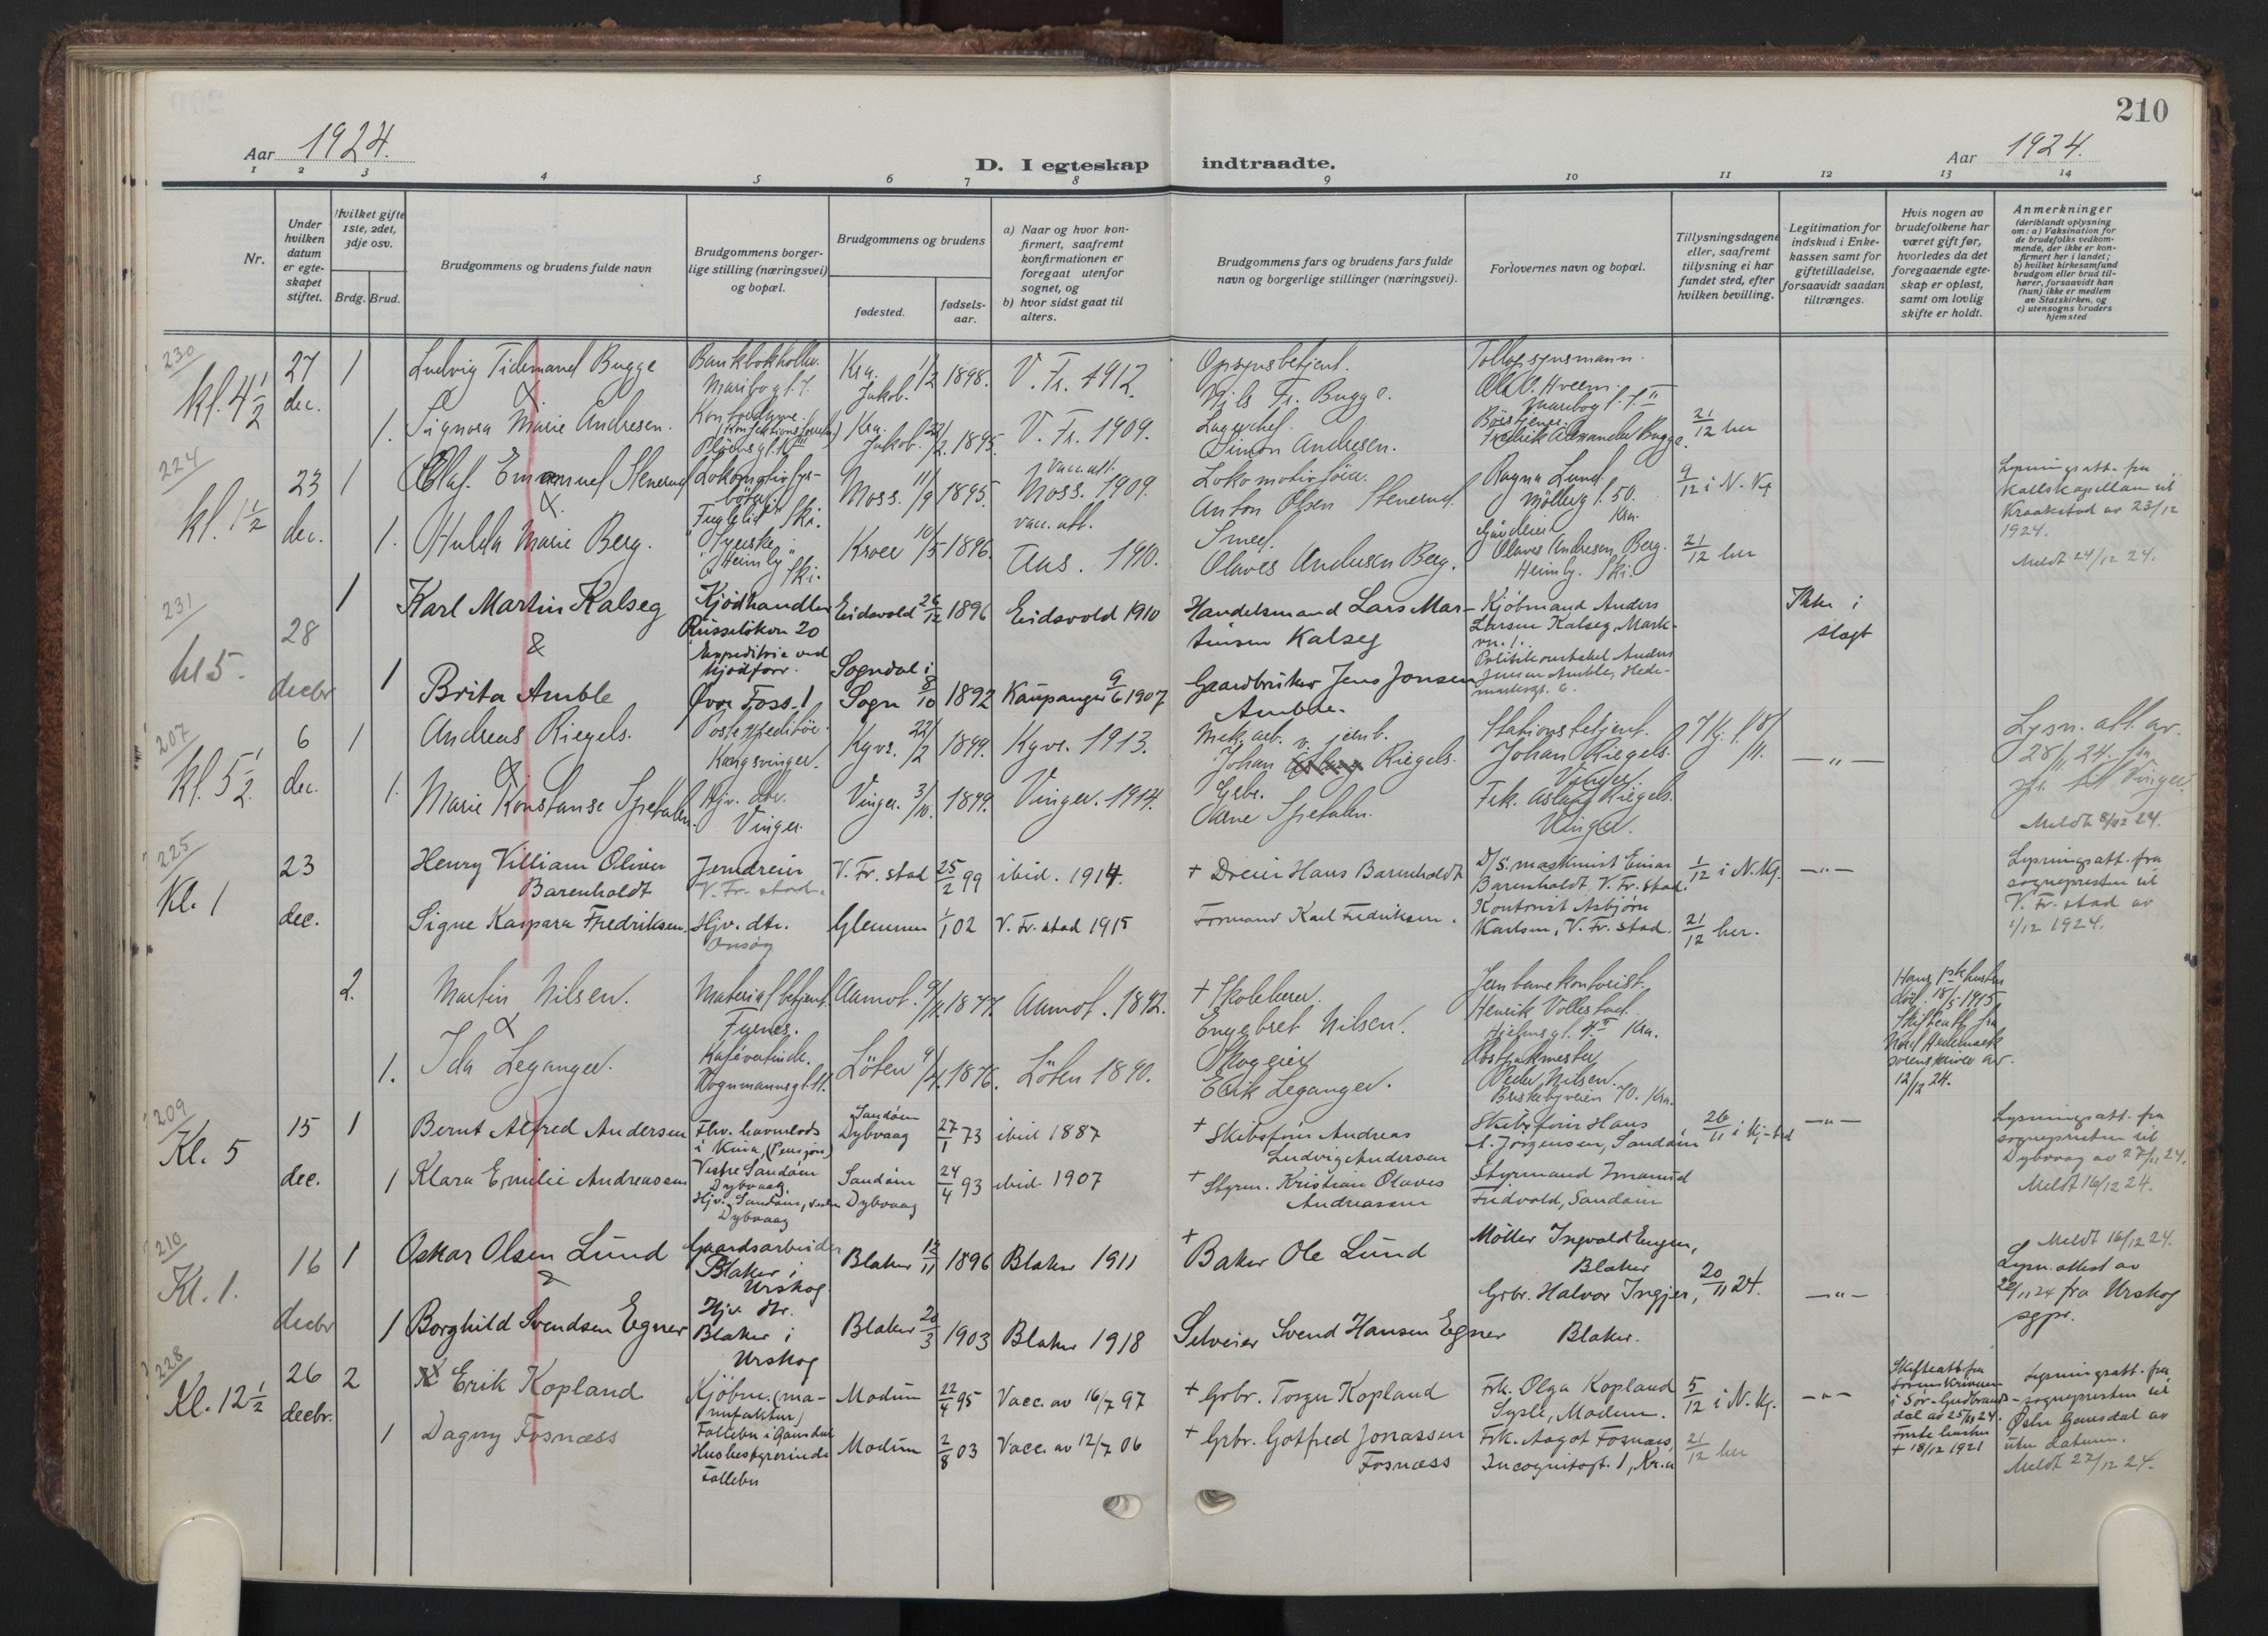 210
Aar 1924.
D. I egteskap indtraadte.
Aar 1924.
1 2 3 4 5 6 7 8 9 10 11 12 13 14
Nr.
Under hvilken datum er egteskapet stiftet.
Hvilket gifte 1ste, 2det, 3dje osv.
Brdg. Brud.
Brudgommens og brudens fulde navn
Brudgommens borgerlige stilling (næringsvei) og bopæl.
Brudgommens og brudens
fødested.
fødselsaar.
a) Naar og hvor konfirmert, saafremt konfirmationen er foregaat utenfor sognet, og
b) hvor sidst gaat til alters.
Brudgommens fars og brudens fars fulde navn og borgerlige stillinger (næringsvei).
Forlovernes navn og bopæl.
Tillysningsdagene eller, saafremt tillysning ei har fundet sted, efter hvilken bevilling.
Legitimation for indskud i Enkekassen samt for giftetilladelse, forsaavidt saadan tiltrænges.
Hvis nogen av brudefolkene har været gift før, hvorledes da det foregaaende egteskap er opløst, samt om lovlig skifte er holdt.
Anmerkninger
(deriblandt oplysning om: a) Vaksination for de brudefolks vedkommende, der ikke er konfirmert her i landet;
b) hvilket kirkesamfund brudgom eller brud tilhører, forsaavidt han (hun) ikke er medlem av Statskirken, og
c) utensogns bruders hjemsted
230 kl. 4 1/2
27 dec.
1 Ludvig Tidemand Bugge
&
Bankbokholder. Maribogt. 7.
Kra. Jakob. 1/2 1898.
V. Fr. 1912.
Opsynsbetjent. Nils Fr. Bugge.
Tollopsynsmann. Ol. O. Hveem. Maribog t. 7 II
1. Signora Marie Andresen.
Kra. Jakob. 22/2. 1895.
V. Fr. 1909.
Lagerchef. Simon Andresen.
Fredrik Alexander Bugge.
21/12 her
224 kl. 1 1/2
23 dec.
1 Olaf. Emanuel Stenerud
&
Lokomotivfyrbøter. "Fuglelid" Ski.
Moss. 11/9 1895.
Vacc. att. Moss. 1909.
Lokomotivfører. Anton Olsen Stenerud.
Ragna Lund. Møllerg t. 50. Kra.
9/12 i N. Kg
Lysningsatt. fra Kallskapellan til Kraakstad av 23/12 1924.
1. Hulda Marie Berg.
Syerske. "Heimly" Ski.
Kroer 10/5 1896.
vacc. att. Aas. 1910.
Smed. Olaves Andresen Berg.
Gårdeier Olaves Andresen Berg. Heimly. Ski.
21/12 her
Meldt 24/12 24.
231 kl 5.
28 decbr
1 Karl Martin Kalseg
&
Kjødhandler Russeløkvn 20
Eidsvold 26/12 1896
Eidsvold 1910
Handelsmand Lars Martinsen Kalseg
Kjøbmand Anders Larsen Kalseg, Markvn. 1.
Ikke i slegt
1 Brita Amble
Expeditrice ved kjødforr. Øvre Foss. 1
Sogndal i Sogn 8/10 1892
Kaupanger 9/6 1907
Gaardbruker Jens Jonsen Amble.
Politikonstabel Anders Jensen Amble, Hedemarksgt. 6.
207 kl. 5 1/2.
6 dec.
1 Andreas Riegels.
&
Postexpeditør. Kongsvinger.
Kgvs. 22/2 1899.
Kgvs. 1913.
Mek. arb. v. jernb. Johan Riegels.
Stationsbetjent. Johan Riegels. Vinger.
— „ —
Lysn. att. av 28/11 24. fra spr. til Vinger.
1. Marie Konstanse Spetalen.
Hjv. dtr. Vinger.
Vinger. 3/10. 1899.
Vinger. 1914.
Grbr. Arne Spetalen.
Frk. Aslaug Riegels. Vinger.
Meldt 8/12 24.
225 Kl. 1
23 dec.
Henry Villiam Oliver Barenholdt
Jerndreier V. Fr. stad.
V. Fr. stad 25/2 99
ibid. 1914.
+ Dreier Hans Barenholdt
D/S. maskinist Einar Barenholdt V. Fr. stad.
1/12 i N. Kg.
— „ —
Lysningsatt. fra sognepresten til V. Fr. stad av 1/12 1924.
Signe Kaspara Fredriksen.
Hjv. dtr. Onsøy
Glemmen 1/1 02
V. Fr. stad 1915
Formand Karl Fredriksen.
Kontorist Asbjørn Karlsen, V. Fr. stad.
21/12 her.
2. Martin Nilsen.
&
Materialbetjent. Furnes.
Aamot. 1877.
Aamot. 1892.
+ Skolelærer. Engebret Nilsen.
Jernbanekontorist. Henrik Vollestad. Hjelmsg t. 4 II Kra.
Hans 1ste hustru død. 18/5 1915. Skifteatt. fra Nord Hedemark sorenskriver av. 12/12 24.
1. Ida Leganger.
Kaféværtinde. Vognmannsg t. 11.
Løten 9/4. 1876.
Løten 1890.
Skogeier Erik Leganger.
Postpakmester Peder Nilsen. Briskebyveien 70. Kra.
209 Kl. 5
15 dec.
1 Bernt Alfred Andersen
Fhv. havnelods i Kina, (Pensjon) Vestre Sandøen Dybvaag
Sandøen Dybvaag 27/1 73
ibid 1887
+ Skibsfører Andreas Ludvig Andersen
Skibsfører Hans A. Jørgensen, Sandøen
26/11
— „ —
Lysningsatt. fra sognepresten til Dybvaag av 27/11 24.
1 Klara Emilie Andreassen
Hjv. Sandøen, Dybvaag
Sandøen Dybvaag 24/4 93
ibid. 1907
+ Styrm. Kristian Olaves Andreassen
Styrmand Imanuel Fredvold, Sandøen
Meldt 16/12 24.
210 Kl. 1.
16 decbr
1 Oskar Olsen Lund
&
Gaardsarbeider Blaker i Urskog
Blaker 12/11 1896
Blaker 1911
+ Baker Ole Lund
Møller Ingvald Engen, Blaker
20/11 24.
— „ —
Meldt 16/12 24.
Lysn. attest av 22/11 24 fra Urskog sgpr.
1 Borghild Svendsen Egner
Hjv. dtr. Blaker i Urskog
Blaker 20/3 1903
Blaker 1918
Selveier Svend Hansen Egner
Grbr. Halvor Ingjer, Blaker.
228 Kl. 12 1/2
26 decbr.
2 Erik Kopland
Kjøbm. (manufaktur) Follebu i Gausdal
Modum 22/4 95
Vacc. av 16/7 97
+ Grbr. Torger Kopland
Frk. Olga Kopland Sysle, Modum.
5/12 i N. Kg.
— „ —
Skifteatt. fra sorenskriveren i Sør-Gudbrandsdal av 25/11 24. Første hustru + 18/12 1921
Lysningsatt. fra sognepresten til Østre Gausdal av uten datum.
1 Dagny Fosnæss
Husbestyrerinde Follebu
Modum 2/8 03
Vacc. av 12/7 06
+ Grbr. Gotfred Jonassen Fosnæss
Frk. Aagot Fosnæss, Incognitogt. 1, Kr.a
21/12 her
Meldt 27/12 24.